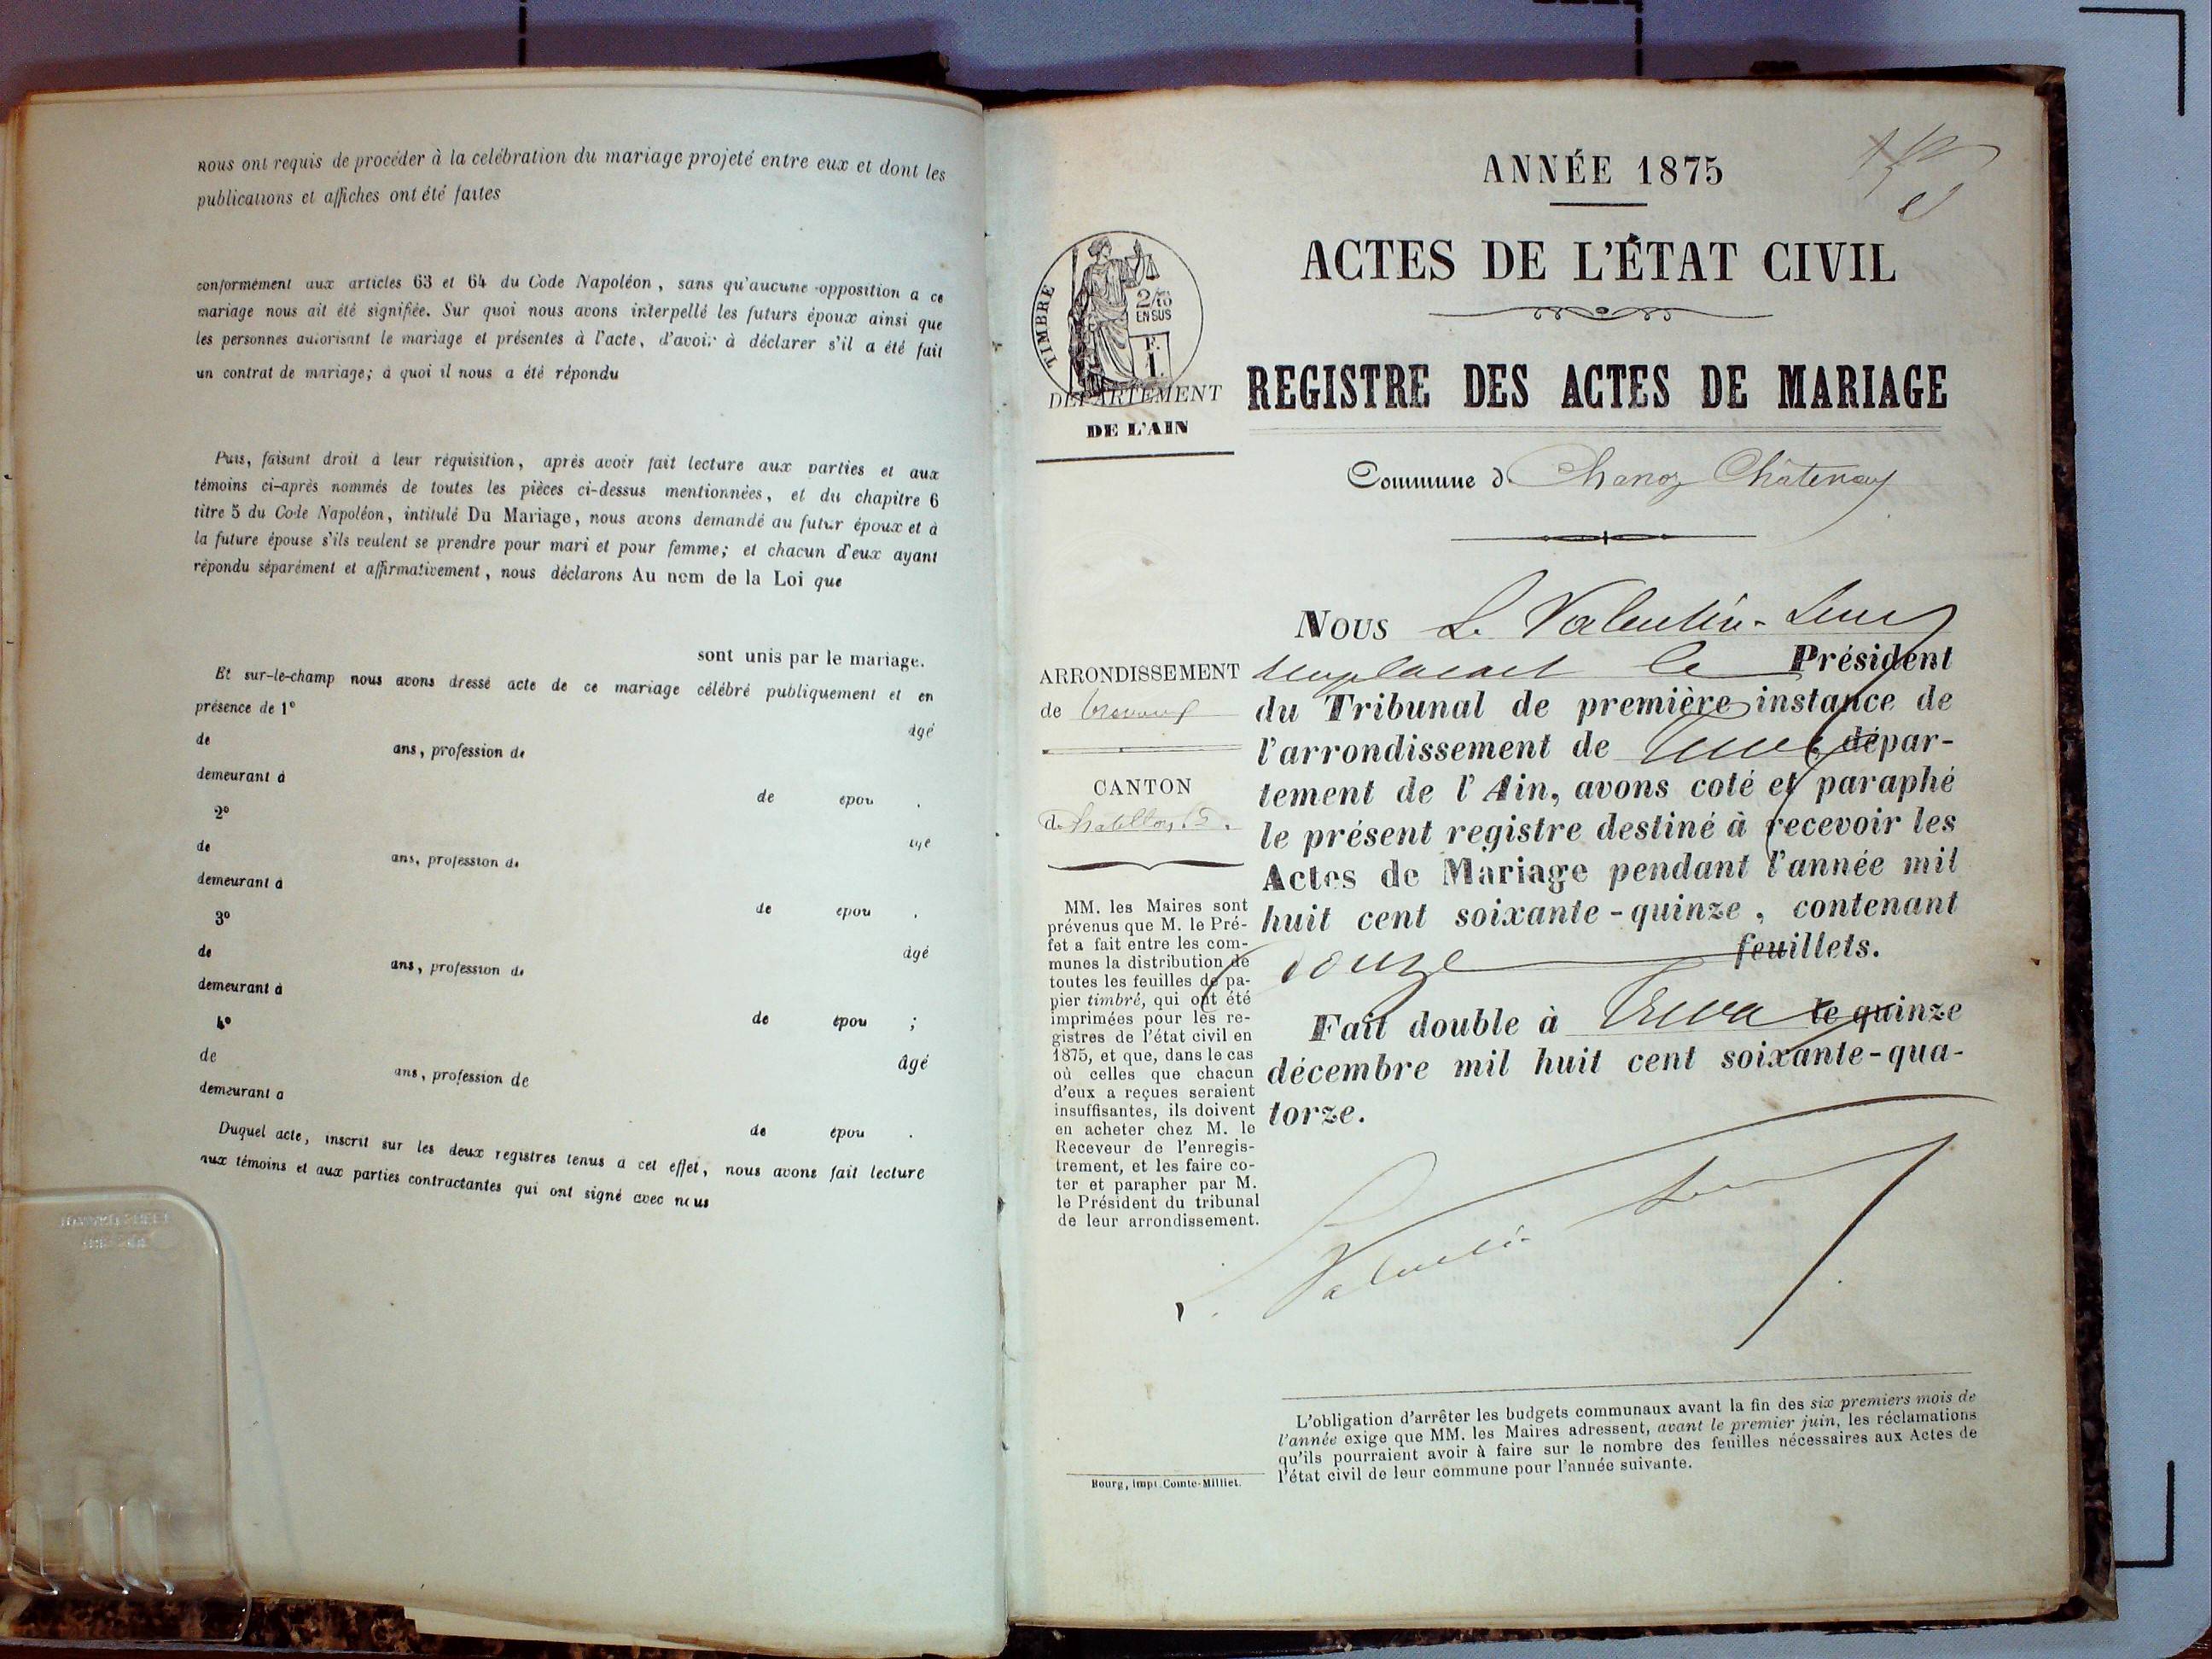 nous ont requis de procéder à la celébration du mariage projeté entre eux et dont les
publications et affiches ont été faites
conformément aux articles 63 et 64 du Code Napoléon, sans qu'aucune opposition a ce
mariage nous ait été signifiée. Sur quoi nous avons interpellé les futurs époux ainsi que
les personnes autorisant le mariage et présentes à l'acte, d'avoir à déclarer s'il a été fait
un contrat de mariage; à quoi il nous a été répondu
Puis, faisant droit à leur réquisition, après avoir fait lecture aux parties et aux
témoins ci-après nommés de toutes les pièces ci-dessus mentionnées, et du chapitre 6
titre 5 du Code Napoléon, intitulé Du Mariage, nous avons demandé au futur époux et à
la future épouse s'ils veulent se prendre pour mari et pour femme; et chacun d'eux ayant
répondu séparément et affirmativement, nous déclarons Au nom de la Loi que
sont unis par le mariage.
Et sur-le-champ nous avons dressé acte de ce mariage célébré publiquement et en
présence de 1º
âgé
de ans, profession de
demeurant à
de épou .
2º
âgé
de ans, profession de
demeurant à
de épou .
3º
âgé
de ans, profession de
demeurant à
de épou ;
4º
âgé
de ans, profession de
demeurant a
de épou .
Duquel acte, inscrit sur les deux registres tenus a cet effet, nous avons fait lecture
aux témoins et aux parties contractantes qui ont signé avec nous
ANNÉE 1875
ACTES DE L'ÉTAT CIVIL
TIMBRE
2/10
EN SUS
F.
1.
DÉPARTEMENT
DE L'AIN
REGISTRE DES ACTES DE MARIAGE
Commune d Chanoz Châtenay
ARRONDISSEMENT
de Trévoux
CANTON
de Chatillon s.
MM. les Maires sont
prévenus que M. le Pré-
fet a fait entre les com-
munes la distribution de
toutes les feuilles de pa-
pier timbré, qui ont été
imprimées pour les re-
gistres de l'état civil en
1875, et que, dans le cas
où celles que chacun
d'eux a reçues seraient
insuffisantes, ils doivent
en acheter chez M. le
Receveur de l'enregis-
trement, et les faire co-
ter et parapher par M.
le Président du tribunal
de leur arrondissement.
Nous L. Valentin-
remplaçant le Président
du Tribunal de première instance de
l'arrondissement de Trévoux, dépar-
tement de l'Ain, avons coté et paraphé
le présent registre destiné à recevoir les
Actes de Mariage pendant l'année mil
huit cent soixante-quinze, contenant
douze feuillets.
Fait double à Trévoux le quinze
décembre mil huit cent soixante-qua-
torze.
L. Valentin
L'obligation d'arrêter les budgets communaux avant la fin des six premiers mois de
l'année exige que MM. les Maires adressent, avant le premier juin, les réclamations
qu'ils pourraient avoir à faire sur le nombre des feuilles nécessaires aux Actes de
l'état civil de leur commune pour l'année suivante.
Bourg, impr. Comte-Milliet.